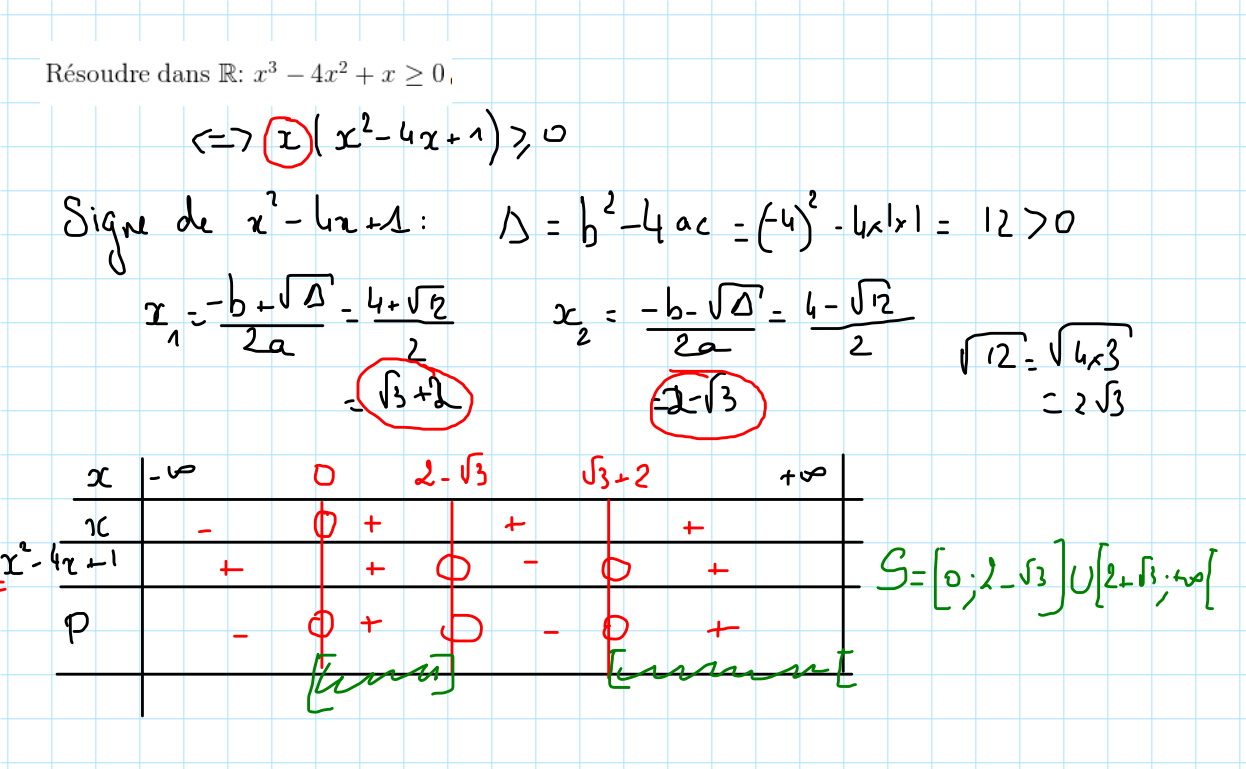 Résoudre dans ℝ: x³ − 4x² + x ≥ 0.
<=> x(x² - 4x + 1) ≥ 0
Signe de x² - 4x + 1 : Δ = b² - 4ac = (-4)² - 4×1×1 = 12 > 0
x₁ = (-b + √Δ)/(2a) = (4 + √12)/2
= √3 + 2
x₂ = (-b - √Δ)/(2a) = (4 - √12)/2
= 2 - √3
√12 = √(4×3)
= 2√3
x -∞ 0 2 - √3 √3 + 2 +∞
x - 0 + + +
x² - 4x + 1 + + 0 - 0 +
P - 0 + 0 - 0 +
S = [0 ; 2 - √3] ∪ [2 + √3 ; +∞[